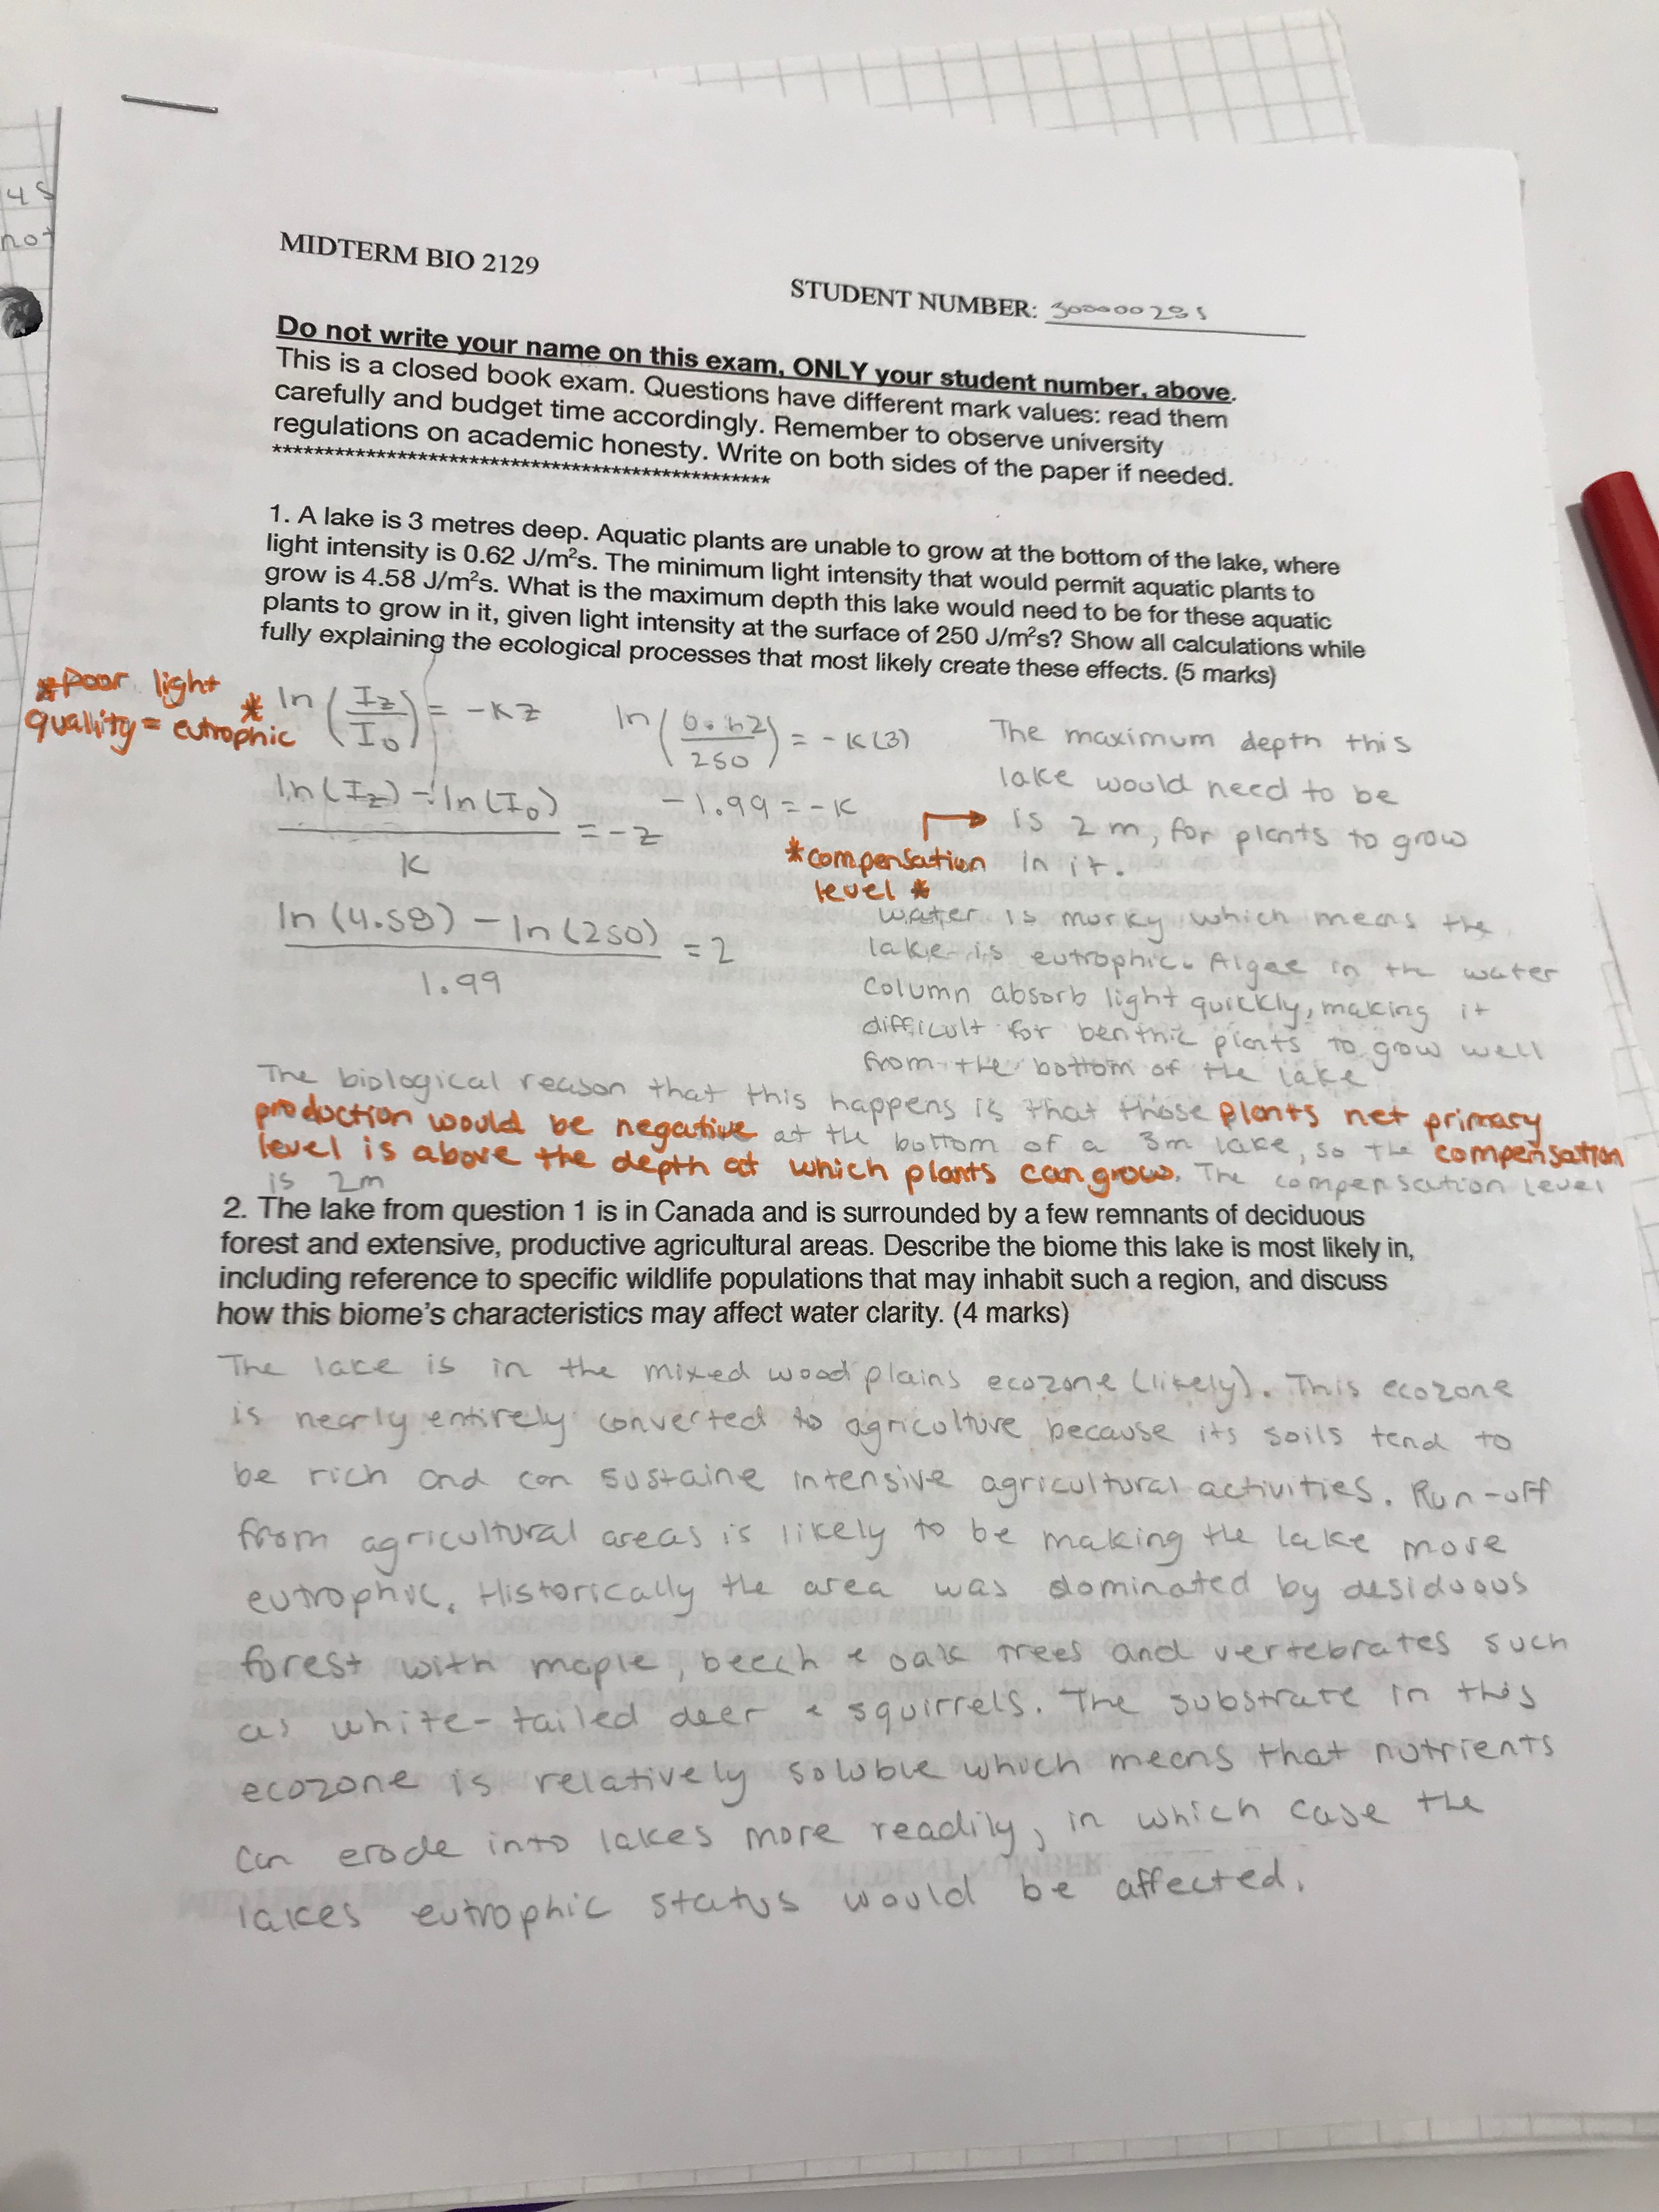 4 S
not
MIDTERM BIO 2129
STUDENT NUMBER: 300000295
Do not write your name on this exam, ONLY your student number, above.
This is a closed book exam. Questions have different mark values: read them
carefully and budget time accordingly. Remember to observe university
regulations on academic honesty. Write on both sides of the paper if needed.
**************************************************
1. A lake is 3 metres deep. Aquatic plants are unable to grow at the bottom of the lake, where
light intensity is 0.62 J/m²s. The minimum light intensity that would permit aquatic plants to
grow is 4.58 J/m²s. What is the maximum depth this lake would need to be for these aquatic
plants to grow in it, given light intensity at the surface of 250 J/m²s? Show all calculations while
fully explaining the ecological processes that most likely create these effects. (5 marks)
*Poor light
quallity = eutrophic *
ln (Iz/I0) = -Kz
ln(Iz) - ln(I0) / K = -z
ln (4.58) - ln (250) / 1.99 = 2
ln (0.62/250) = -K(3)
-1.99 = -K
*compensation
level *
The maximum depth this
lake would need to be
is 2 m, for plants to grow
in it.
water is murky which means the
lake is eutrophic. Algae in the water
column absorb light quickly, making it
difficult for benthic plants to grow well
from the bottom of the lake
The biological reason that this happens is that those plants net primary
production would be negative at the bottom of a 3m lake, so the compensation
level is above the depth at which plants can grow. The compensation level
is 2m
2. The lake from question 1 is in Canada and is surrounded by a few remnants of deciduous
forest and extensive, productive agricultural areas. Describe the biome this lake is most likely in,
including reference to specific wildlife populations that may inhabit such a region, and discuss
how this biome's characteristics may affect water clarity. (4 marks)
The lake is in the mixed wood plains ecozone (likely). This ecozone
is nearly entirely converted to agriculture because its soils tend to
be rich and can sustaine intensive agricultural activities. Run-off
from agricultural areas is likely to be making the lake more
eutrophic. Historically the area was dominated by desiduous
forest with maple, beech & oak trees and vertebrates such
as white-tailed deer & squirrels. The substrate in this
ecozone is relatively soluble which means that nutrients
can erode into lakes more readily, in which case the
lakes eutrophic status would be affected.